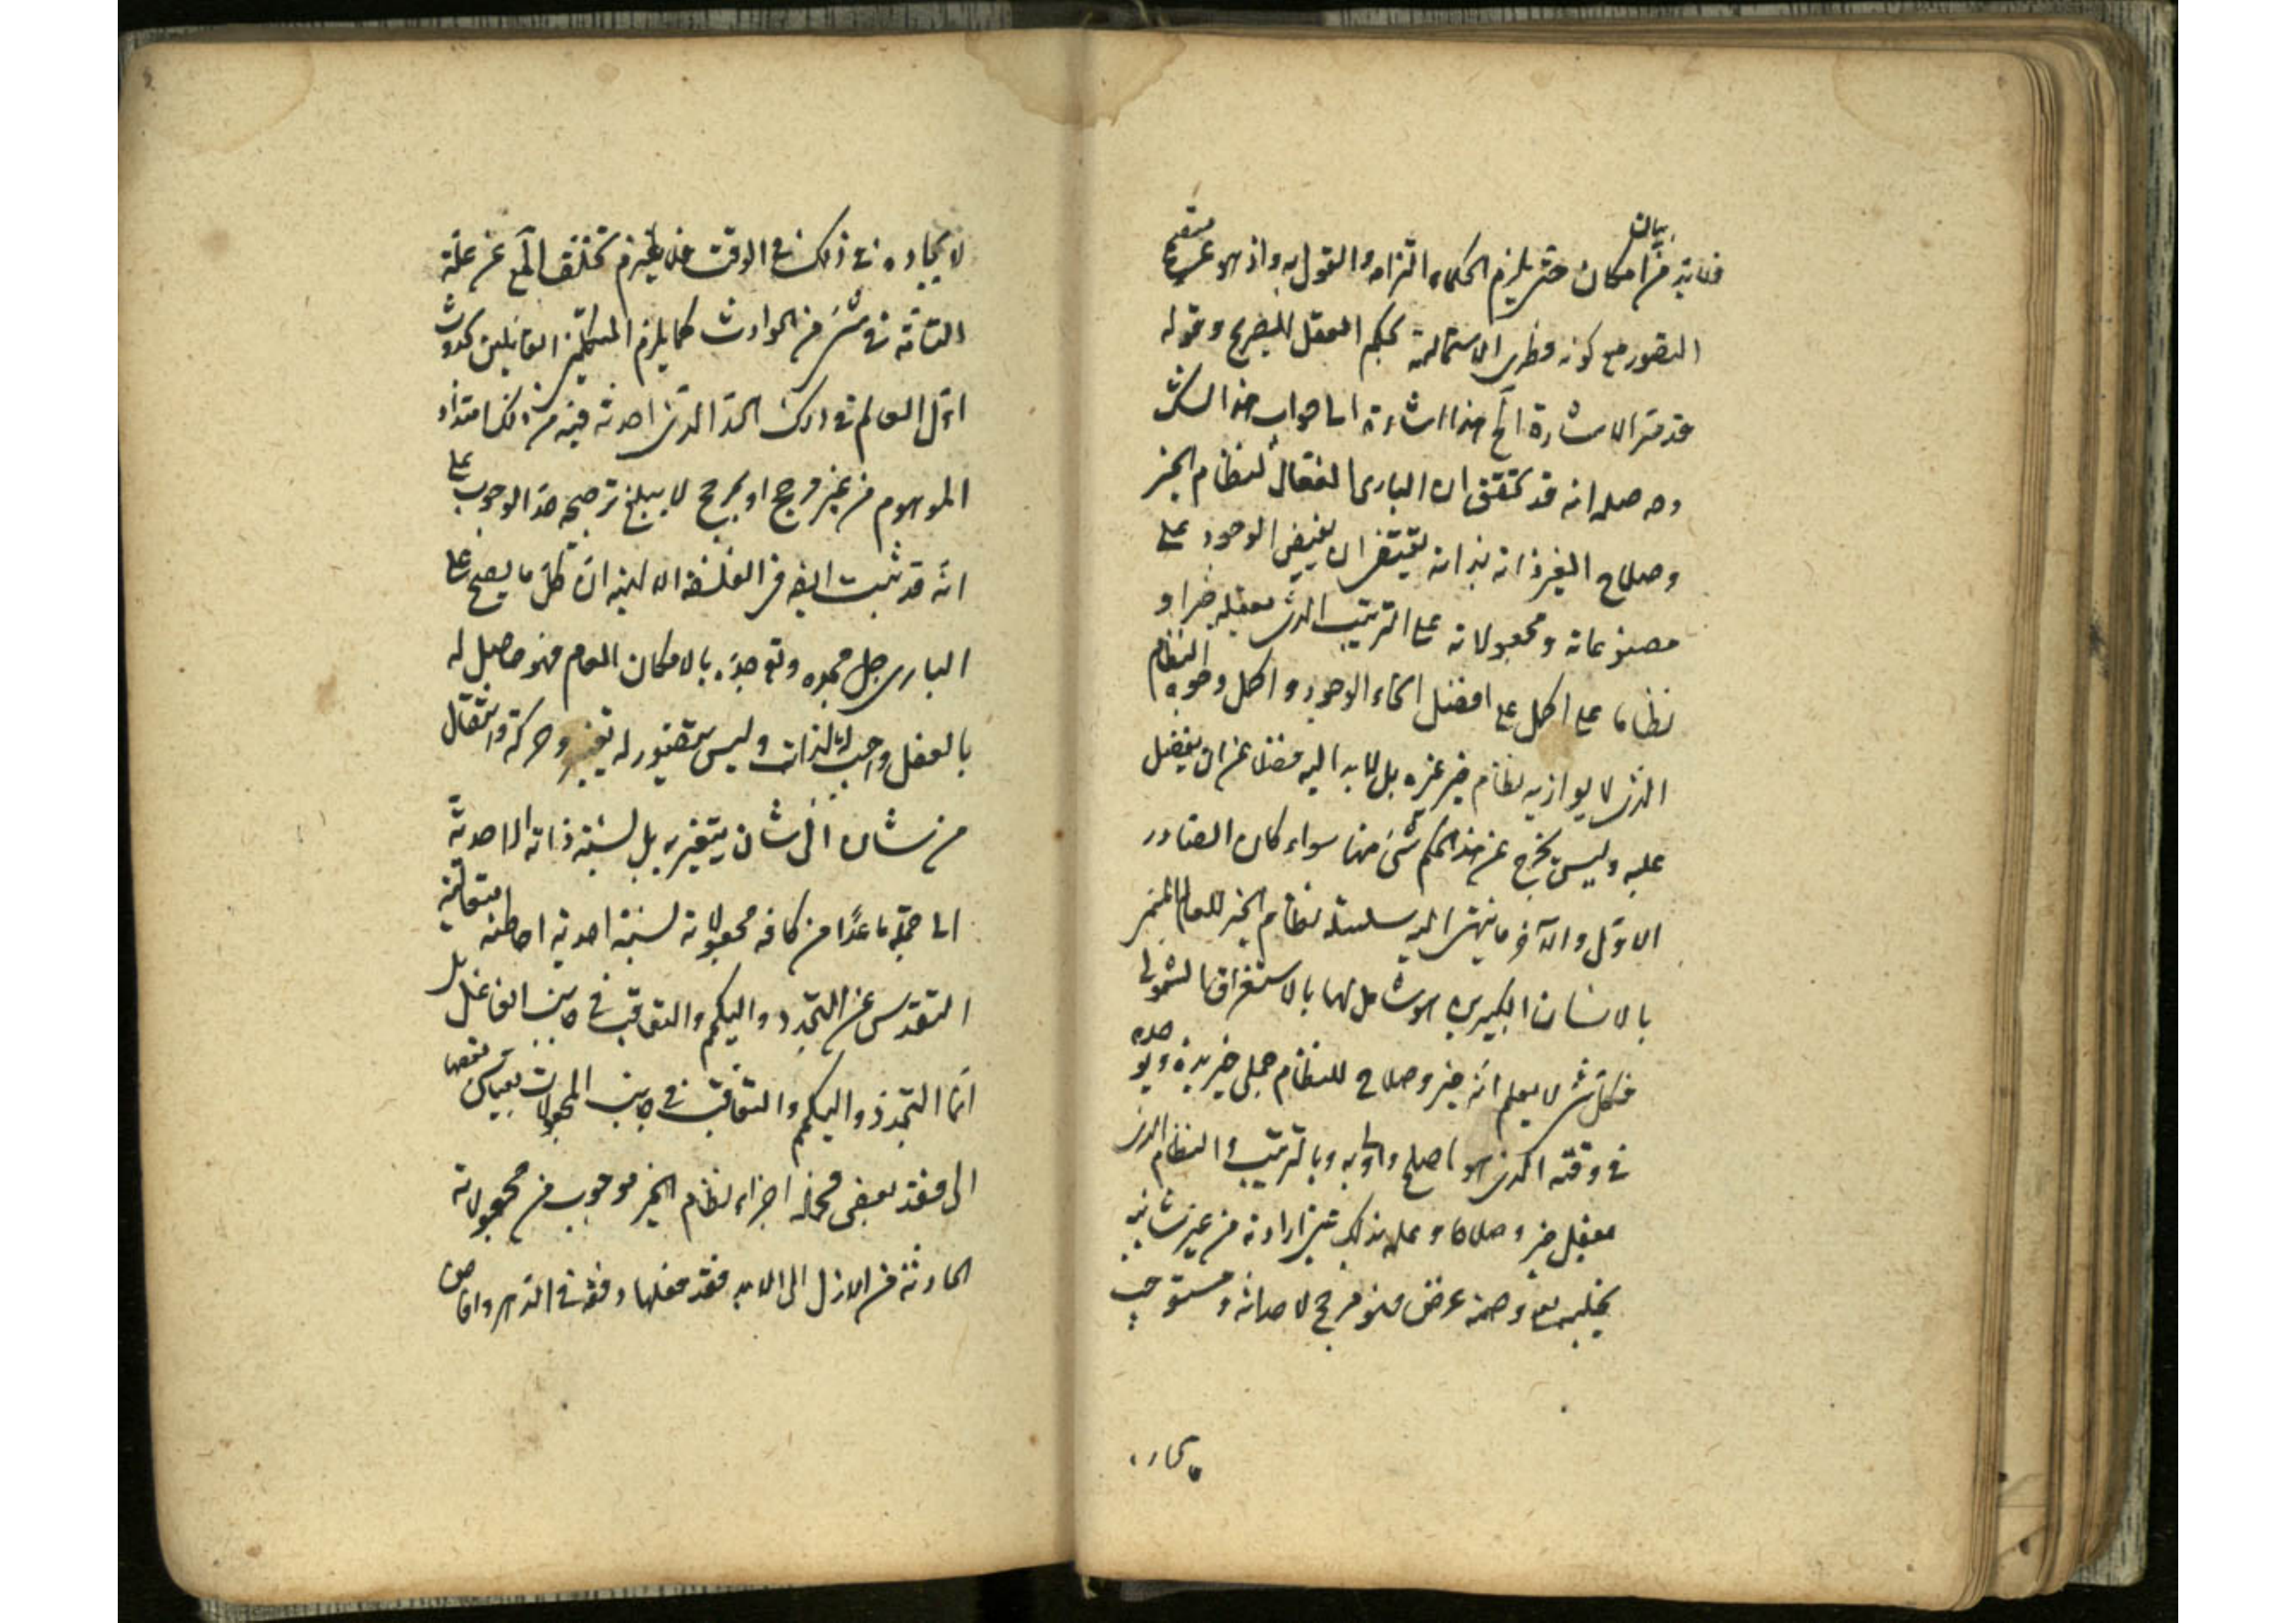 فلا بد من بيان امكان حتى يلزم الحكماء التزامه والقول به واذ هو غير مستقيم
التصور مع كونه فطرى الاستحالة بحكم العقل الصريح وقوله
قد مر الاشارة الخ هذا اشارة الى جواب هذا الشك
وحاصله انه قد تحقق ان البارى الفعال لنظام الخير
وصلاح الغير ذاته بذاته يقتضى ان يفيض الوجود على
مصنوعاته ومجعولاته على الترتيب الذى يعقله خيرا و
نظاما على اكمل على افضل انحاء الوجود واكمل وجوه النظام
الذى لا يوازيه نظام خير غيره بل لا يدانيه فضلا عن ان يفضل
عليه وليس يخرج عن هذا الحكم شئ منها سواء كان الصادر
الاول والآخر ما ينتهى اليه سلسلة نظام الخير للعالم
بالانسان الكبير هو شامل لها بالاستغراق الشمولى
فكل شئ لا يعلم انه خير وصلاح للنظام جملى
فى وقته الذى هو اصلح واولى به وبالترتيب والنظام الذى
يعقل خيرا وصلاحا وعلمه بذلك عين ارادته من غير شائبة
غرض فهو مرجح لاحداثه ومستوجب
لايجاده
لايجاده فى ذلك الوقت فلا يلزم تخلف المع عن علته
التامة فى شئ من الحوادث كما يلزم المتكلمين القائلين بحدوث
اول العالم فى ذلك الحد الذى احدثه فيه من ذلك امتداد
الموهوم من غير مرجح او بمرجح لا يبلغ ترجيحه حد الوجوب على
انه قد ثبت ايضا فى الفلسفة الالهية ان كل ما يصح على
البارى جل مجده وتوحيده بالامكان العام فهو حاصل له
بالفعل واجب له لذاته وليس يتصور له تغير وحركة وانتقال
من شان الى شان يتغير به بل نسبة ذاته الاحدية
الى جملة ما عدا من كافة مجعولاته نسبة احدية احاطته متعالية
التقدس عن التجدد والتكمم والتعاقب فى جانب الفاعل بل
انما التجدد والتكمم والتعاقب فى جانب المجعولات بقياس بعضها
الى بعض فجملة اجزاء نظام الخير موجوب من مجعولاته
الحادثة من الازل الى الابد فقد فعلها دفعة فى الدهر وافاض